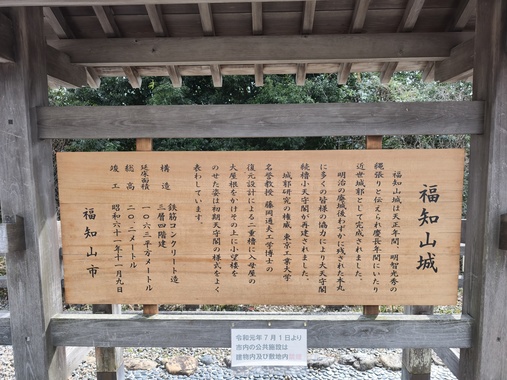 福知山城
福知山城は天正年間、明智光秀の
縄張りと伝えられ慶長年間にいたり
近世城郭として完成されました。
明治の廃城後わずかに残された本丸
に多くの皆様の協力により大天守閣
続櫓小天守閣が再建されました。
城郭研究の権威 東京工業大学
名誉教授 藤岡通夫工学博士の
復元設計による二重櫓に入母屋の
大屋根をかけその上に小望楼を
のせた姿は初期天守閣の様式をよく
表わしています。
構造 鉄筋コンクリート造
三層四階建
延床面積 一〇六三平方メートル
総高 二〇.二メートル
竣工 昭和六十一年十一月九日
福知山市
令和元年7月1日より
市内の公共施設は
建物内及び敷地内